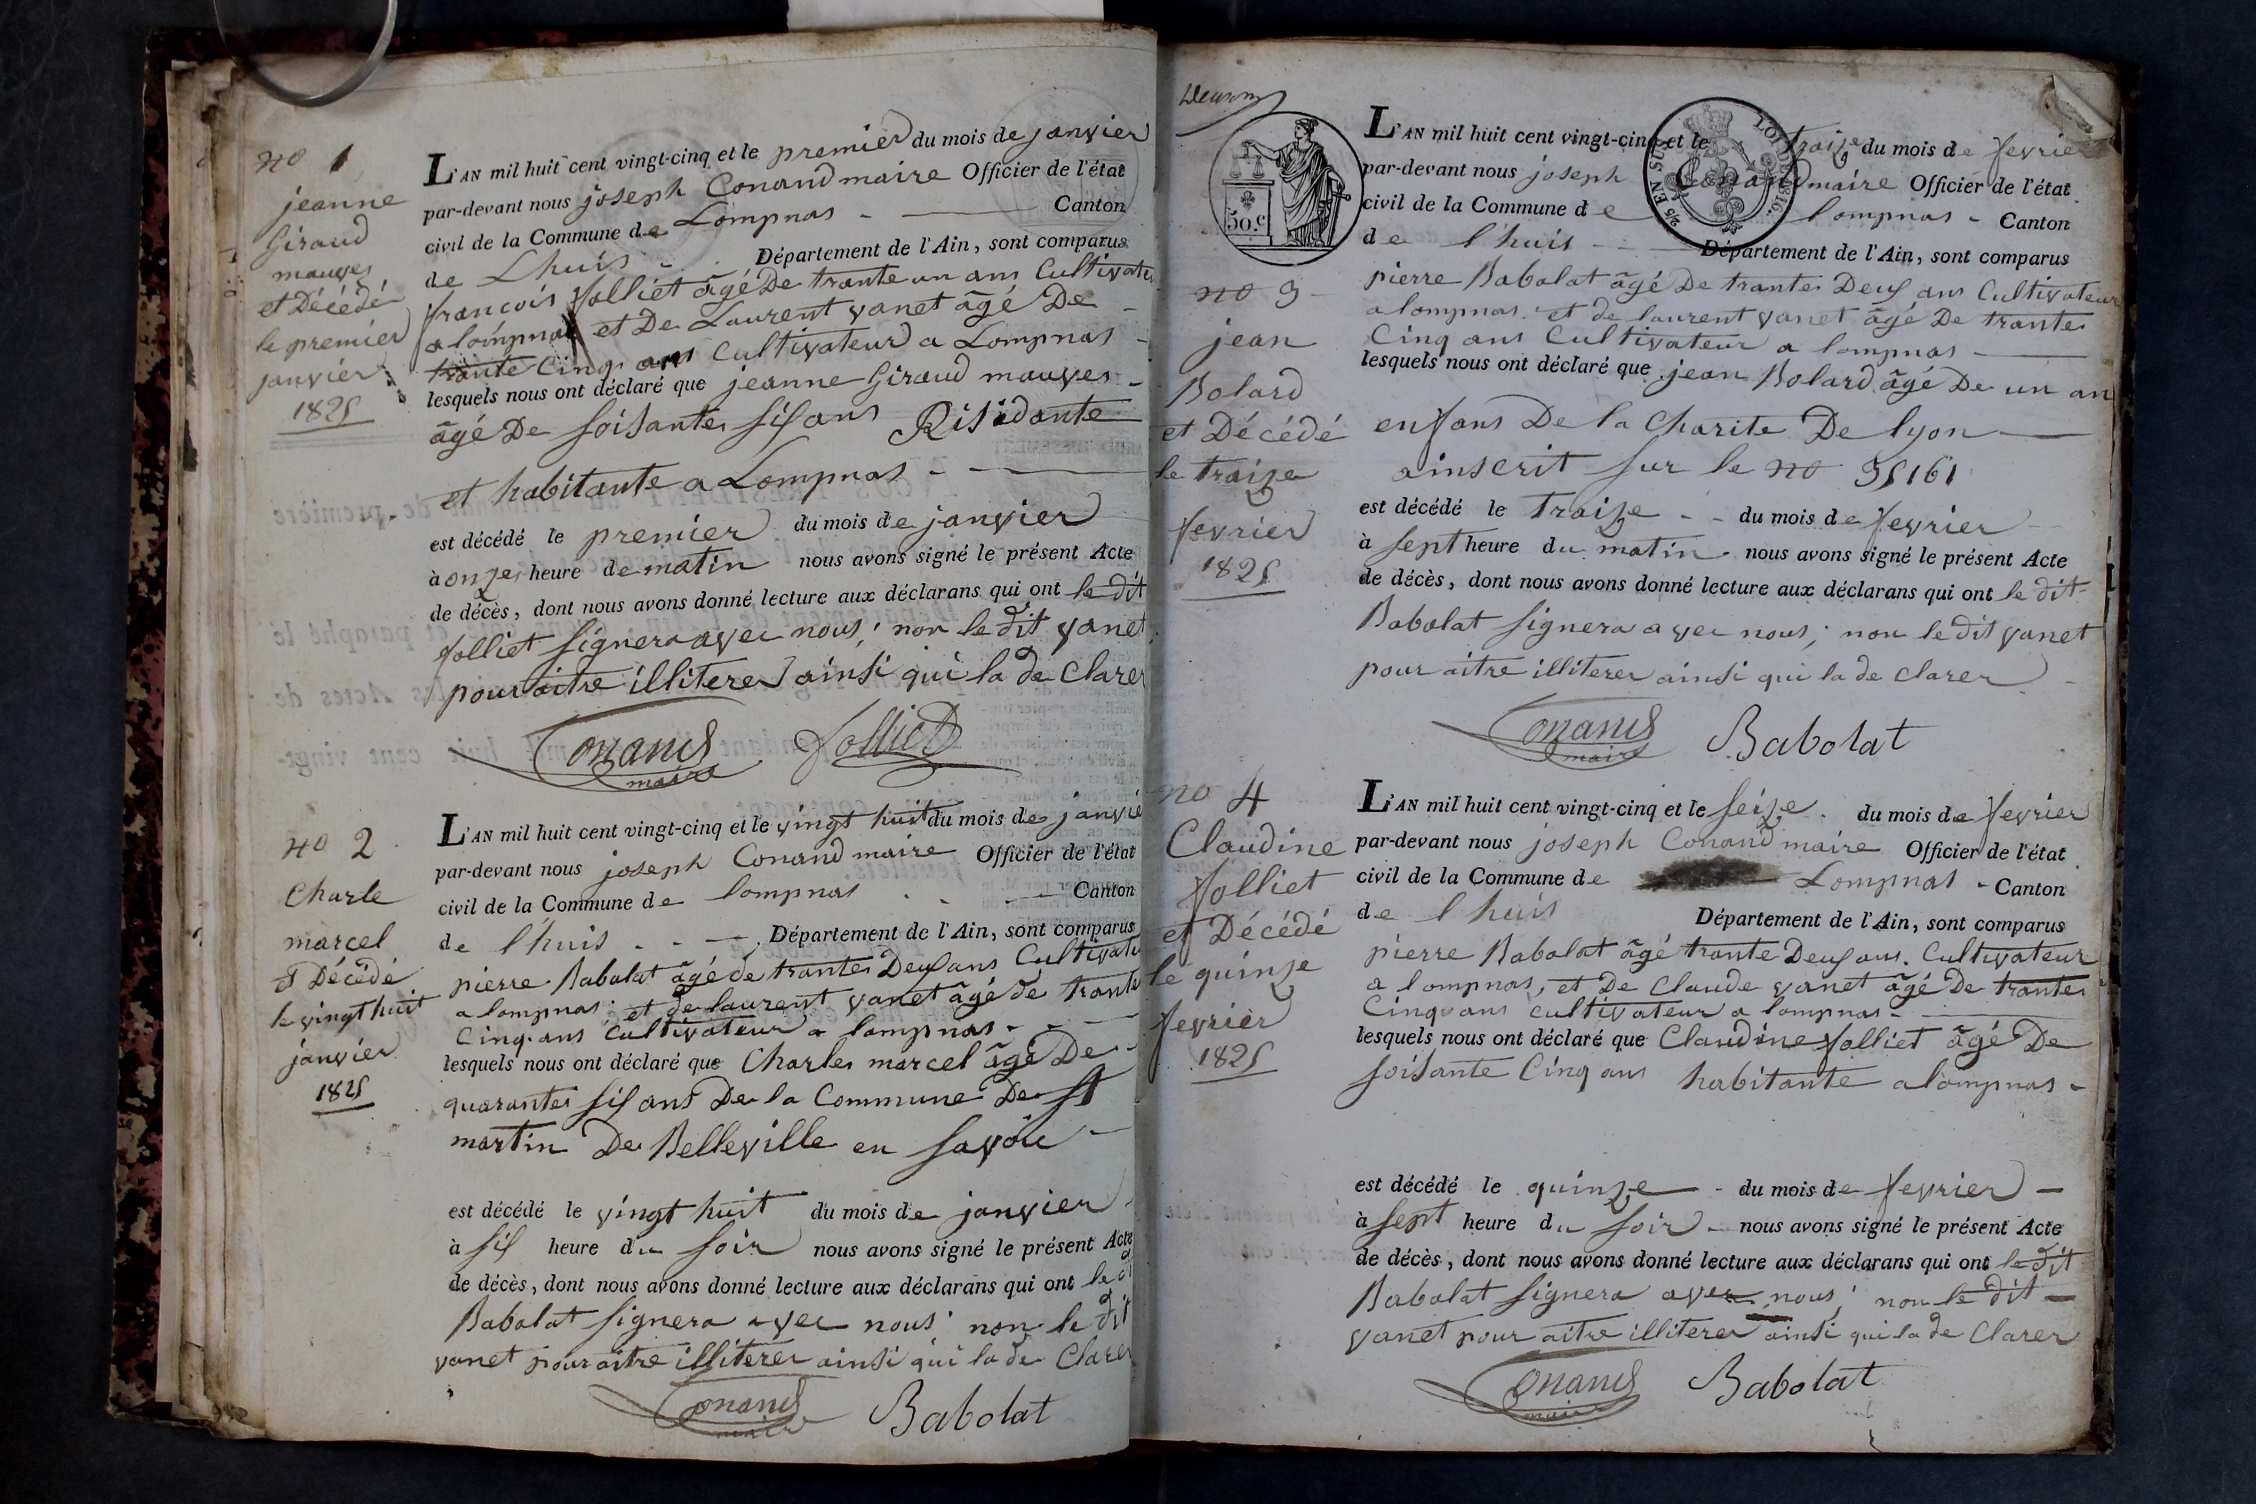 no 1
jeanne
Giraud
mauves
et Décédé
le premier
janvier
1825
L'AN mil huit cent vingt-cinq et le premier du mois de janvier
par-devant nous joseph Conand maire Officier de l'état
civil de la Commune de Lompnas - Canton
de Lhuis - Département de l'Ain, sont comparus
françois Jolliet âgé De trante un ans Cultivate
a lompnas et De Laurent vanet âgé De
trante Cinq ans Cultivateur a Lompnas -
lesquels nous ont déclaré que jeanne Giraud mauves -
âgé De soisante six ans Résidante
et habitante a Lompnas -
est décédé le premier du mois de janvier
à onze heure de matin nous avons signé le présent Acte
de décès, dont nous avons donné lecture aux déclarans qui ont le dit
Jolliet signera avec nous; non le dit vanet
pour aitre illiterer ainsi qui la de Clarer
Conand Jolliet
maire
no 2
Charle
marcel
et Décédé
le vingt huit
janvier
1825
L'AN mil huit cent vingt-cinq et le vingt huit du mois de janvie
par-devant nous joseph Conand maire Officier de l'état
civil de la Commune de lompnas - Canton
de lhuis - Département de l'Ain, sont comparus
pierre Babolat âgé de trante Deux ans Cultivate
a lompnas; et de laurent vanet âgé de trante
Cinq ans Cultivateur a lompnas -
lesquels nous ont déclaré que Charles marcel âgé De
quarante six ans De la Commune De St
martin De Belleville en Savoie -
est décédé le vingt huit du mois de janvier
à six heure du soir nous avons signé le présent Acte
de décès, dont nous avons donné lecture aux déclarans qui ont le d
Babolat signera avec nous; non le dit
vanet pour aitre illiterer ainsi qui la de Clarer
Conand Babolat
maire
50 C.
LOI DE 1816.
2/5 EN SUS
no 3
jean
Bolard
et Décédé
le traize
fevrier
1825
L'AN mil huit cent vingt-cinq et le traize du mois de fevrier
par-devant nous joseph Conand maire Officier de l'état
civil de la Commune de lompnas - Canton
de lhuis - Département de l'Ain, sont comparus
pierre Babolat âgé De trante Deux ans Cultivateur
a lompnas et de laurent vanet âgé De trante
Cinq ans Cultivateur a lompnas -
lesquels nous ont déclaré que jean Bolard âgé De un an
enfans De la Charite De lyon
ainscrit sur le no 35161
est décédé le traize - du mois de fevrier
à sept heure du matin nous avons signé le présent Acte
de décès, dont nous avons donné lecture aux déclarans qui ont le dit
Babolat signera avec nous; non le dit vanet
pour aitre illiterer ainsi qui la de clarer
Conand Babolat
maire
no 4
Claudine
Jolliet
et Décédé
le quinze
fevrier
1825
L'AN mil huit cent vingt-cinq et le seize du mois de fevrier
par-devant nous joseph Conand maire Officier de l'état
civil de la Commune de Lompnas - Canton
de lhuis Département de l'Ain, sont comparus
pierre Babolat âgé trante Deux ans. Cultivateur
a lompnas, et De Claude vanet âgé De trante
Cinq ans cultivateur a lompnas -
lesquels nous ont déclaré que Claudine Jolliet âgé De
soisante Cinq ans habitante a lompnas -
est décédé le quinze - du mois de fevrier -
à sept heure du soir - nous avons signé le présent Acte
de décès, dont nous avons donné lecture aux déclarans qui ont le dit
Babolat signera avec nous; non le dit -
vanet pour aitre illiterer ainsi qui la de clarer
Conand Babolat
maire